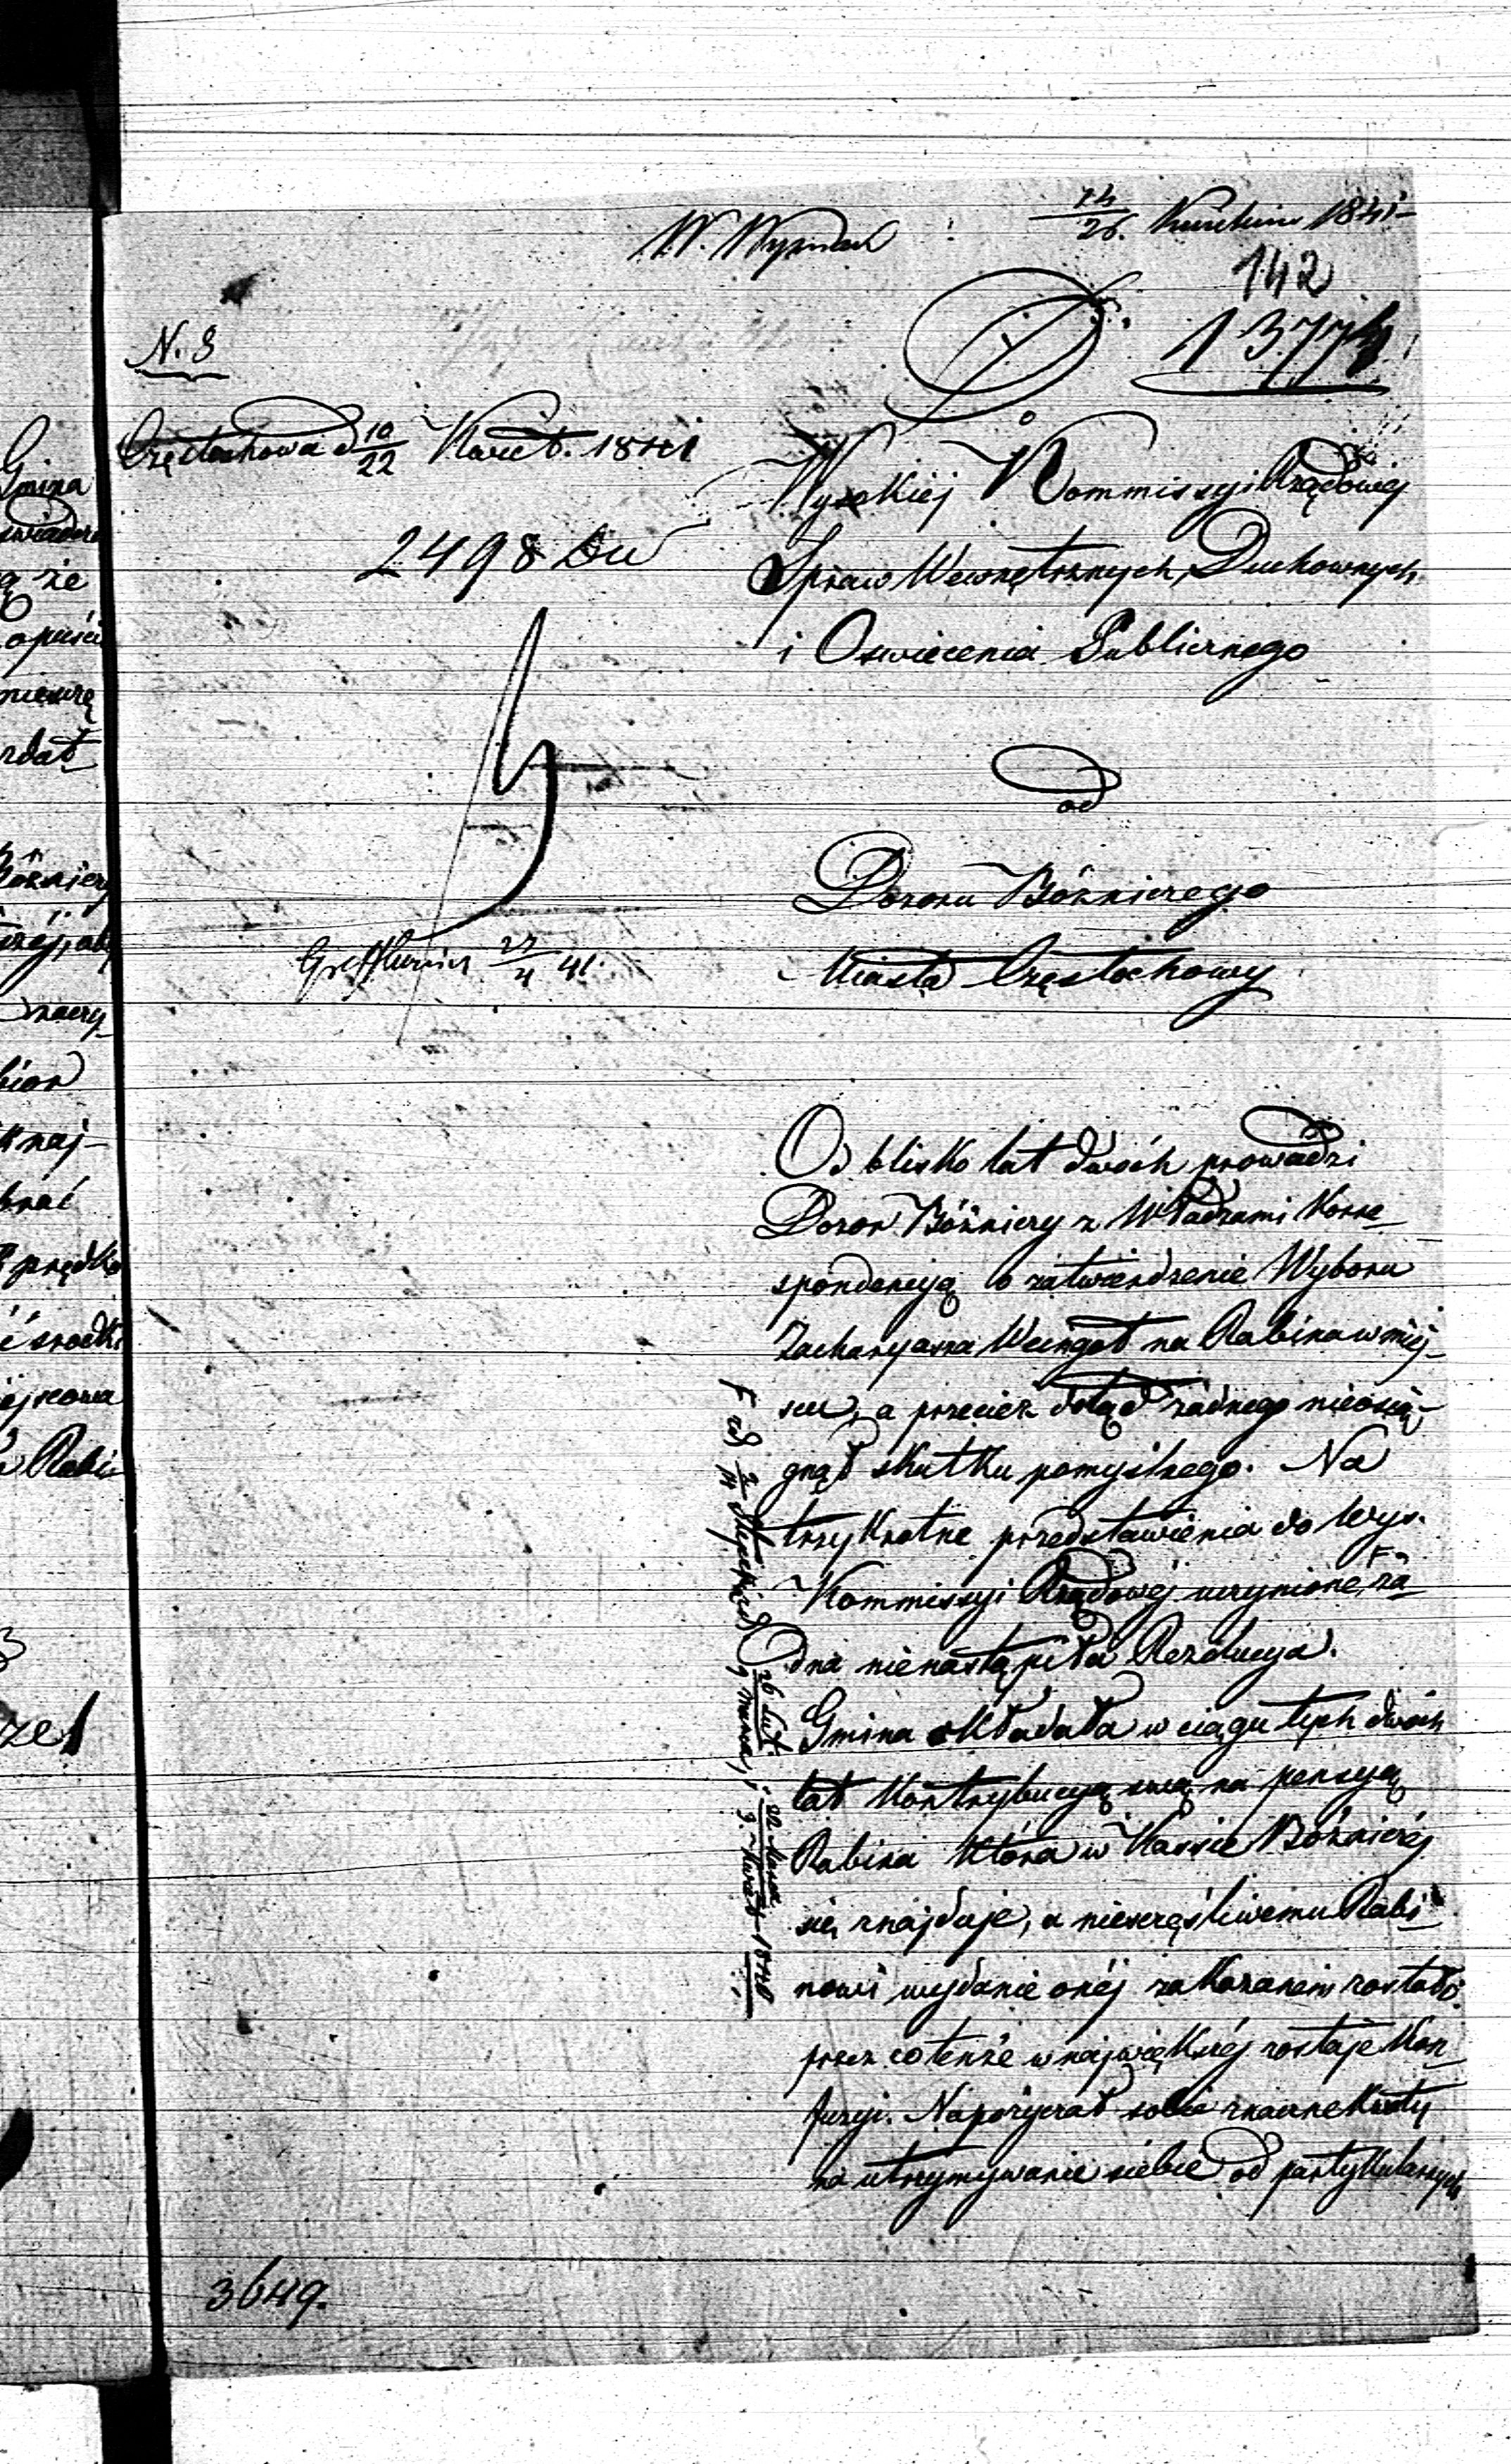 14/26. Kwietnia 1841
W. Wyznań
142
13774
N. 8
Częstochowa d 10/22 Kwiet. 1841
2498
Wysokiéj Kommissyi Rządowéj
Spraw Wewnętrznych, Duchownych
i Oswiecenia Publicznego
od
Dozoru Bóżniczego
Miasta Częstochowy
27/4 41.
Od blisko lat dwóch prowadzi
Dozor Bóżniczy z Władzami Korre-
spondencyą o zatwierdzenie Wyboru
Zacharyasza Weingot na Rabina w miej-
scu, a przecież dotąd żadnego nieosią-
gnął skutku pomyślnego. Na
trzykrotne przedstawienia do Wys.
Kommissyi Rządowéj uczynione, F ża-
dna nienastąpiła Rezolucya.
Gmina składała w ciągu tych dwóch
lat Kontrybucyą swą na pensyą
Rabina która w Kassie Bóżniczéj
się znajduje, a nieszczęśliwemu Rabi-
nowi wydanie onéj zakazanem zostało
przez co tenże w największéj zostaje Kon-
fuzyi. Napożyczał sobie znaczne Kwoty
na utrzymywanie siebie od partykularnych
F z d 2/14 Stycznia, 26 Lut./9 Marca, i 22 Marca/3. Kwiet. 1840
3649.
Gmina
ą że
opuści
rdał
prędko
srodki
Rabi-